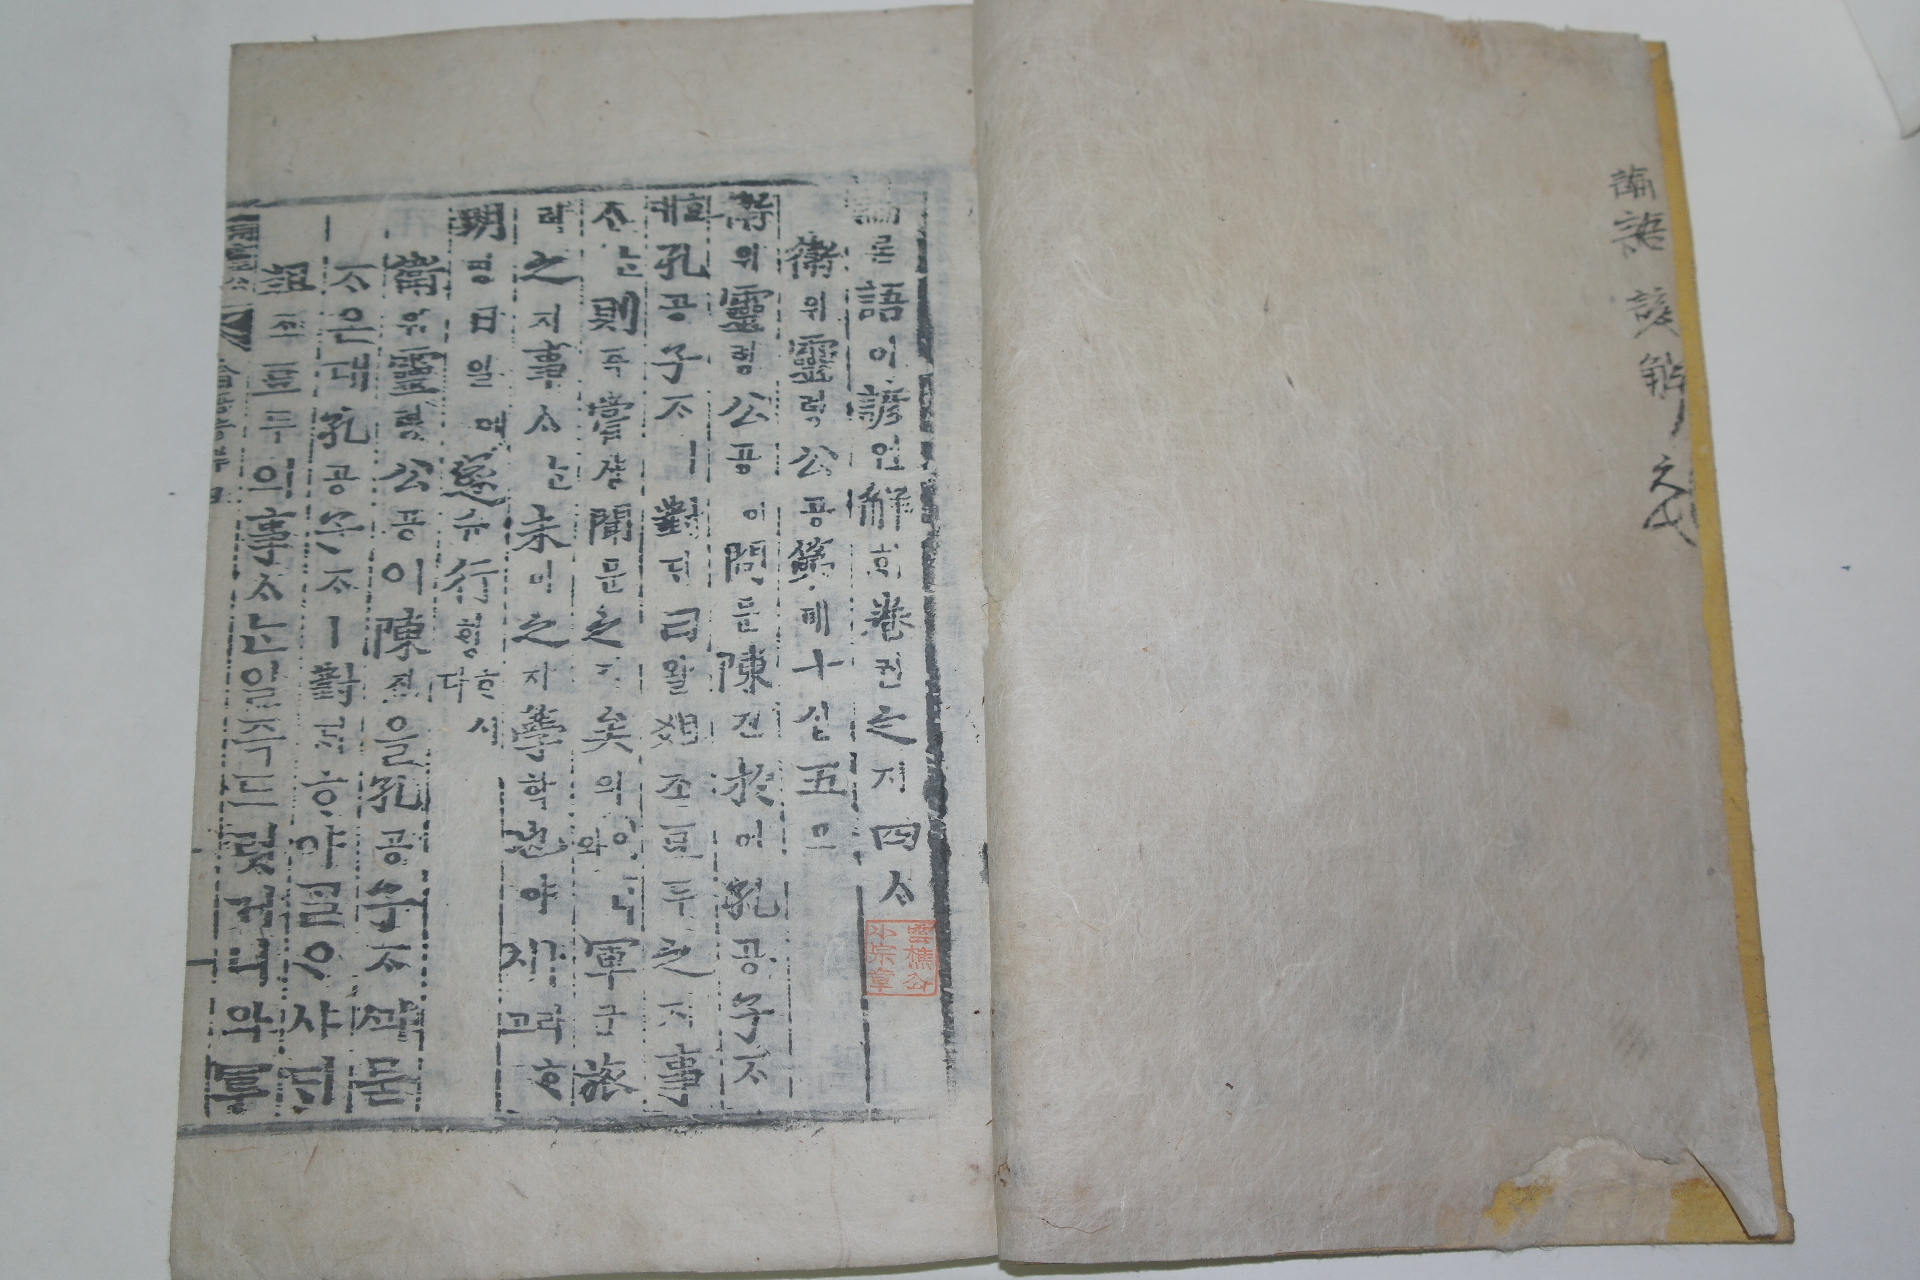 論語諺解 之
論론語어諺언解ᄒᆡ卷권之지四ᄉᆞ
雲樵公
小宗章
衛위靈령公공第뎨十십五오
衛위靈령公공이問문陳딘於어孔공子ᄌᆞ
ᄒᆞᆫ대孔공子ᄌᆞㅣ對ᄃᆡ曰왈俎조豆두之지事
ᄉᆞᄂᆞᆫ則즉嘗샹聞문之지矣의어니와軍군旅
려之지事ᄉᆞᄂᆞᆫ未미之지學학也야ㅣ라ᄒᆞ시고
明명日일에遂슈行ᄒᆡᆼᄒᆞ시다
衛위靈령公공이陳딘을孔공子ᄌᆞᄭᅴ묻
ᄌᆞ온대孔공子ᄌᆞㅣ對ᄃᆡᄒᆞ야ᄀᆞᆯᄋᆞ샤ᄃᆡ
俎조豆두의事ᄉᆞᄂᆞᆫ일즉드럿거니와軍